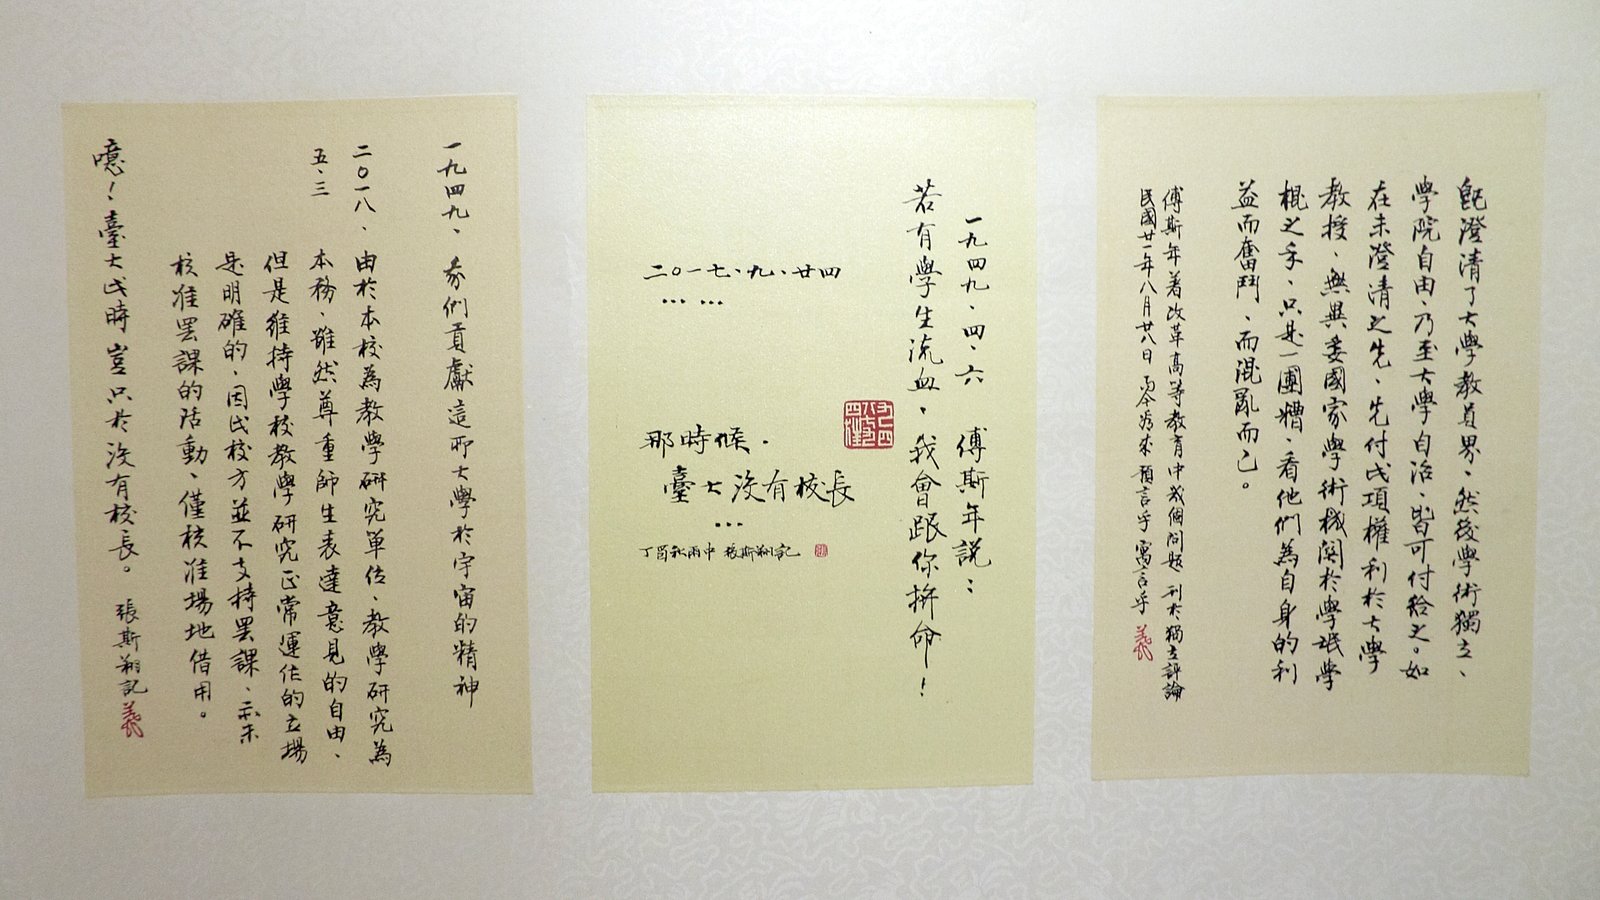 既澄清了大學教員界、然後學術獨立、
學院自由、乃至大學自治、皆可付給之。如
在未澄清之先、先付此項權利於大學
教授、無異委國家學術機關於學氓學
棍之手、只是一團糟、看他們為自身的利
益而奮鬥、而混亂而已。
傅斯年著改革高等教育中幾個問題 刊於獨立評論
民國廿一年八月廿八日 而今看來 預言乎 寓言乎
一九四九、四、六 傅斯年說：
若有學生流血、我會跟你拚命！
二〇一七、九、廿四
……
那時候．
臺大沒有校長
…
丁酉秋雨中 張斯翔記
一九四九、我們貢獻這所大學於宇宙的精神
二〇一八、由於本校為教學研究單位、教學研究為
五．三 本務、雖然尊重師生表達意見的自由、
但是維持學校教學研究正常運作的立場
是明確的、因此校方並不支持罷課、亦未
核准罷課的活動、僅核准場地借用。
噫！臺大此時豈只於沒有校長。 張斯翔記